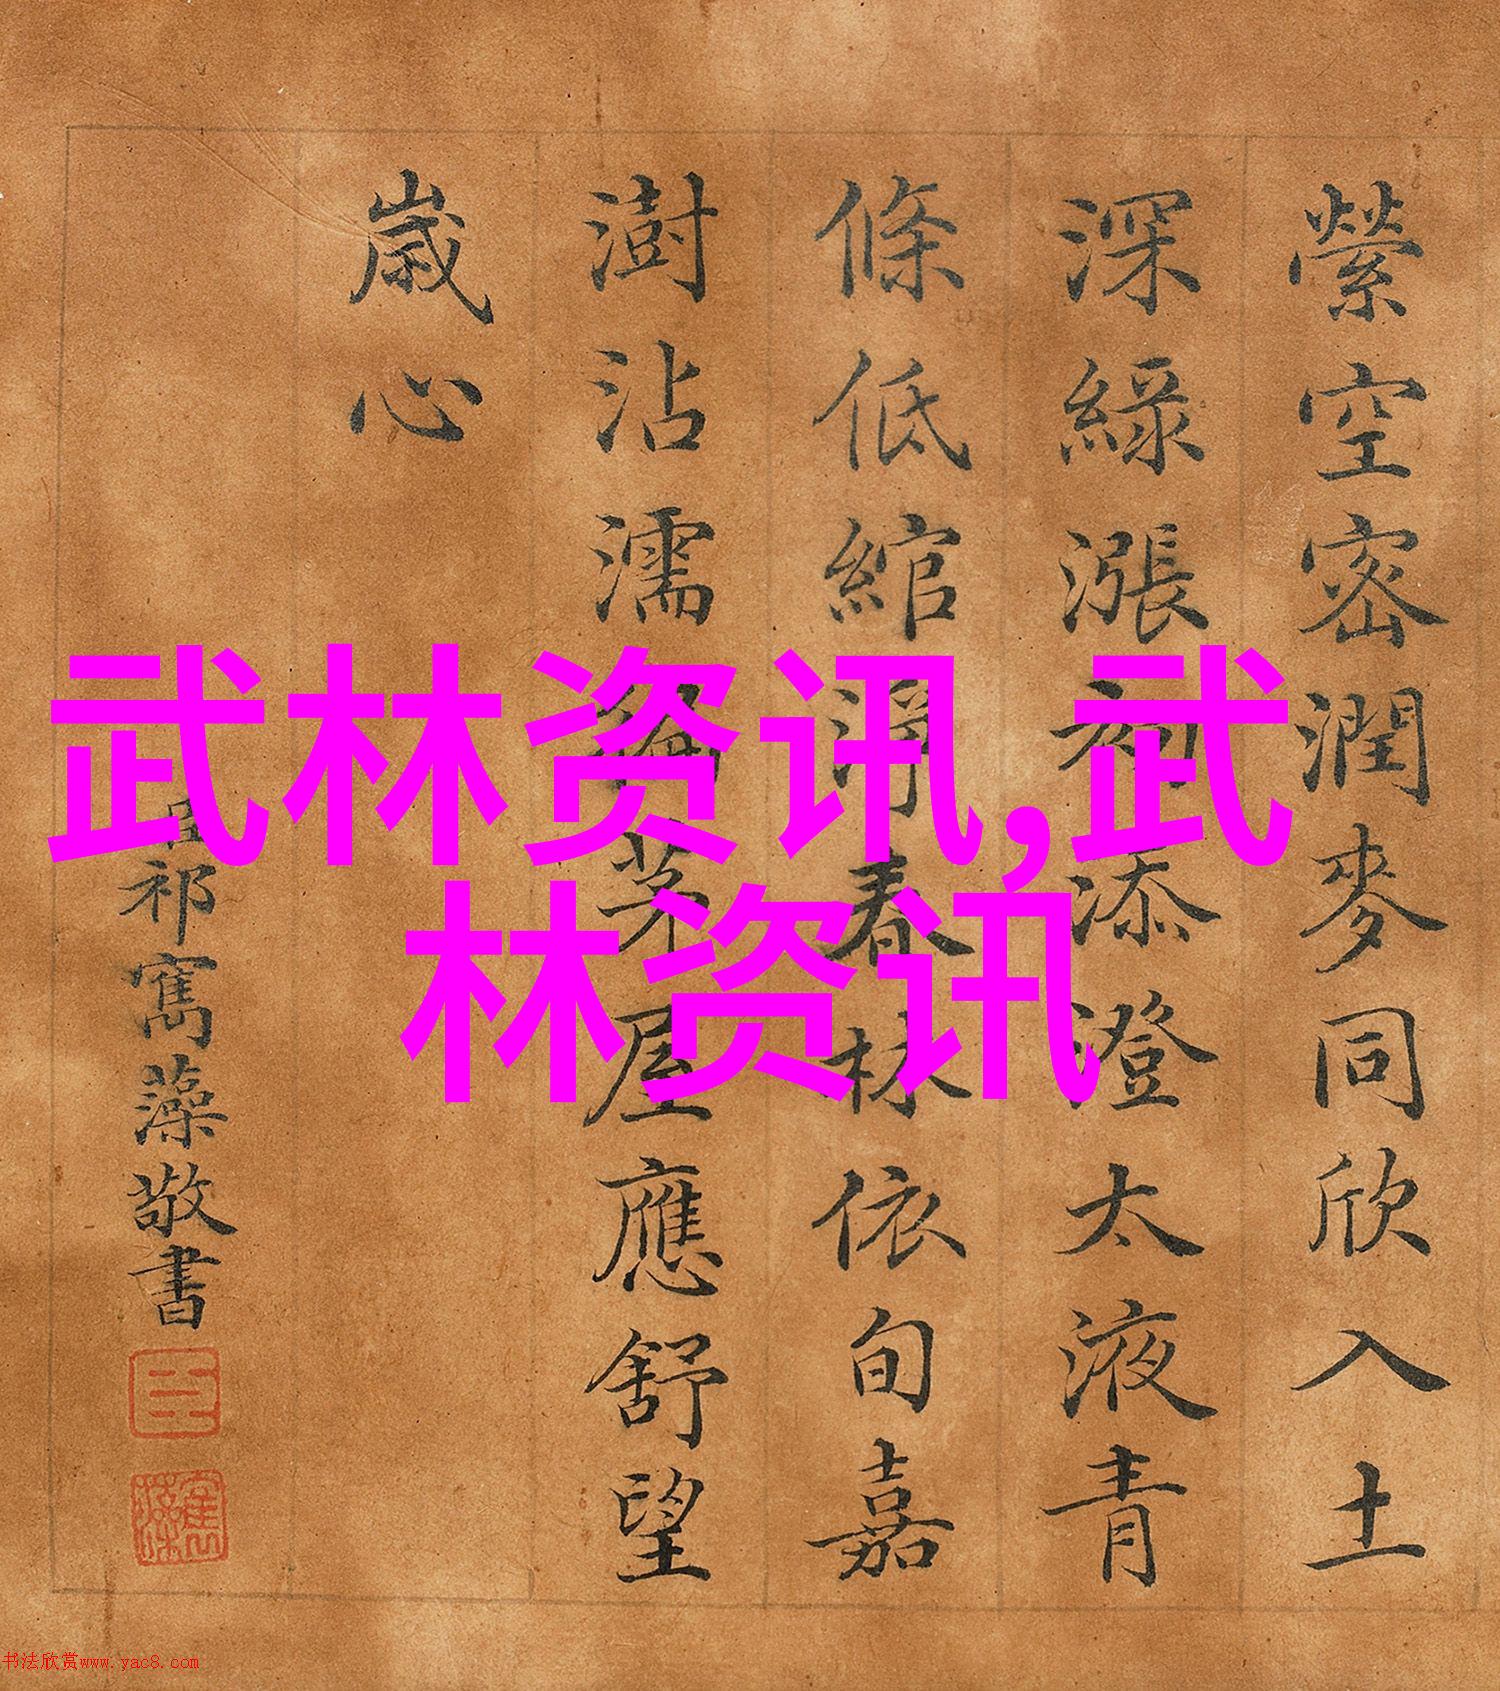 縈空密潤麥同欣入土
深綠漲初添澄太液青
條低綰淨春林依旬嘉
澍沾濡徧茅屋應舒望
嵗心
臣祁寯藻敬書
臣
寯藻
武林资讯,武
林资讯
书法欣赏www.yac8.com